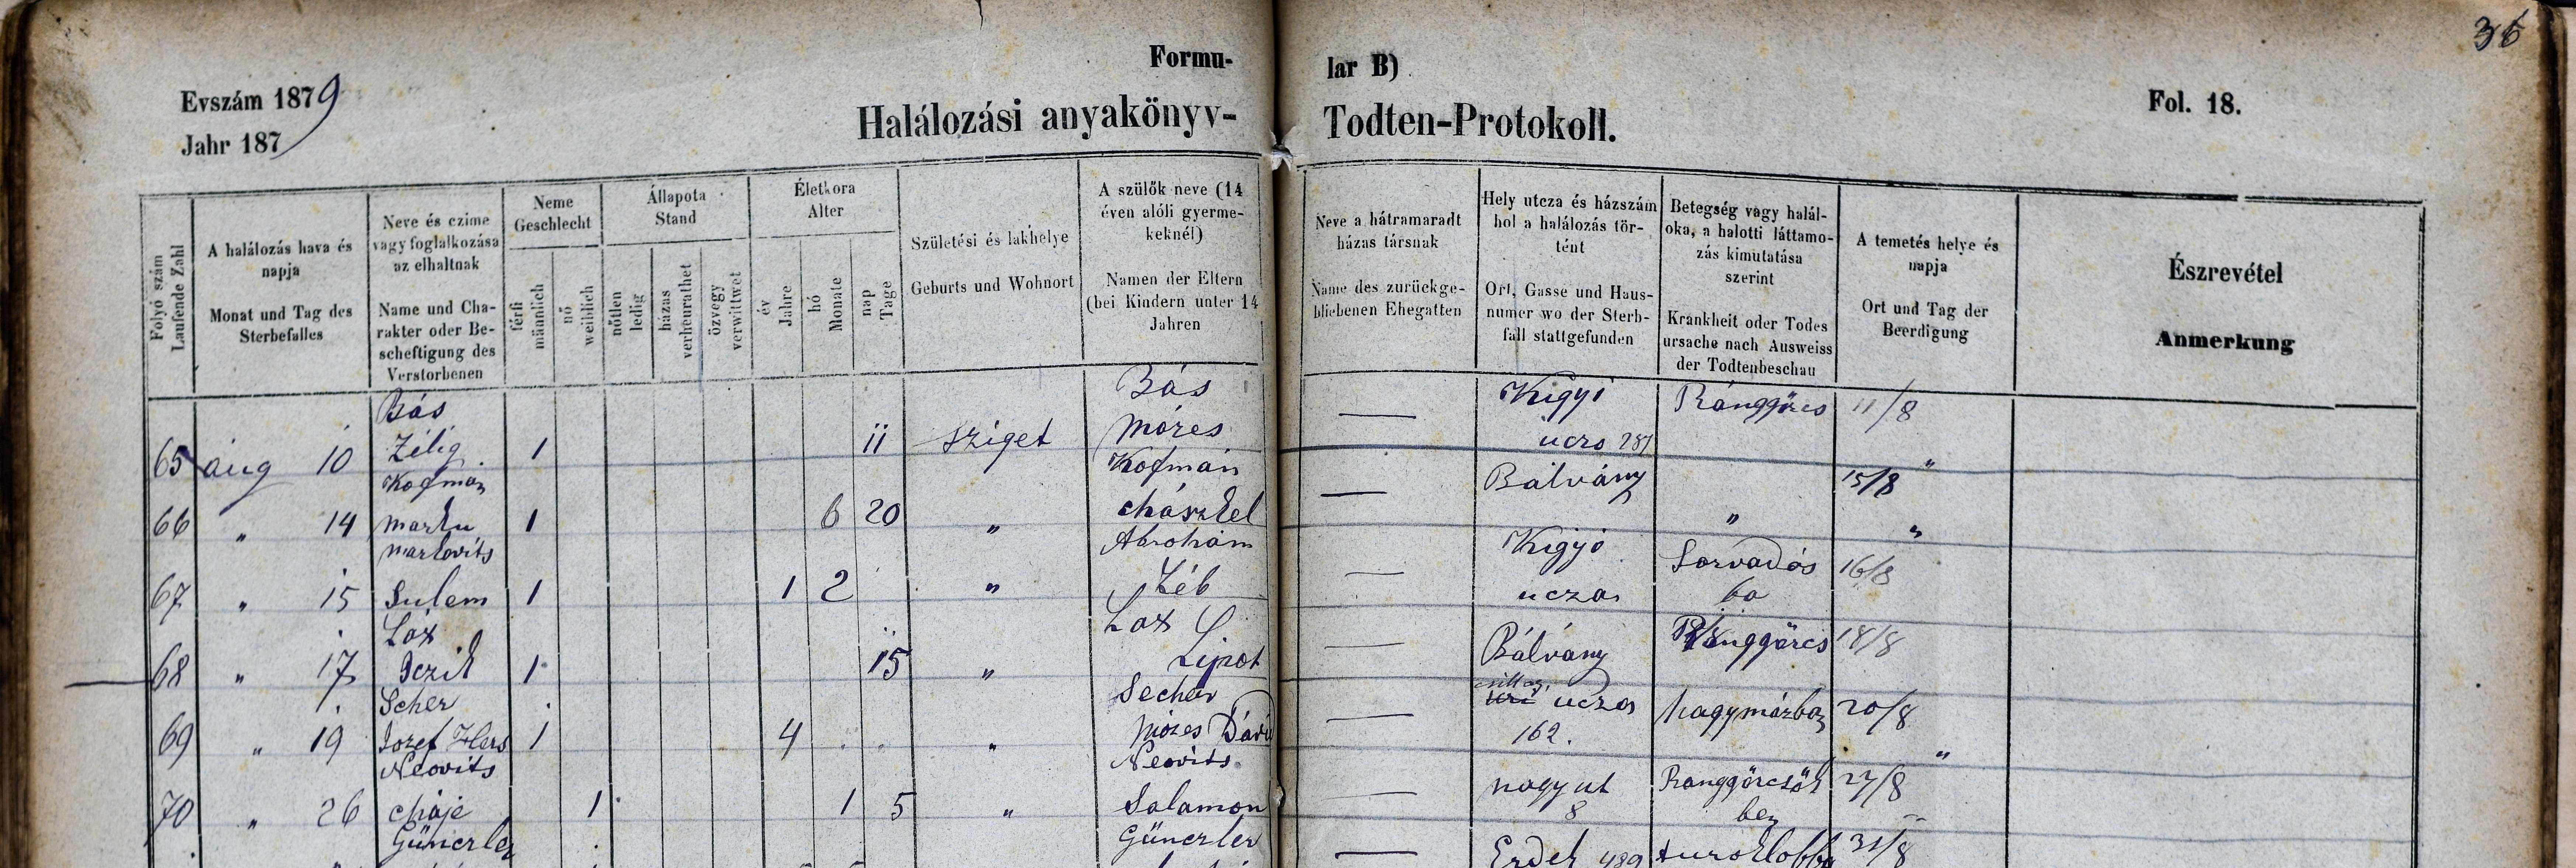 36
Formu-
lar B)
Evszám 1879
Jahr 187
Halálozási anyakönyv-
Todten-Protokoll.
Fol. 18.
Folyó szám
Laufende Zahl
A halálozás hava és
napja
Monat und Tag des
Sterbefalles
Neve és czime
vagy foglalkozása
az elhaltnak
Name und Cha-
rakter oder Be-
scheftigung des
Verstorbenen
Neme
Geschlecht
férfi
männlich
nő
weiblich
Állapota
Stand
nőtlen
ledig
házas
verheurathet
özvegy
verwittwet
Életkora
Alter
év
Jahre
hó
Monate
nap
Tage
Születési és lakhelye
Geburts und Wohnort
A szülők neve (14
éven alóli gyerme-
keknél)
Namen der Eltern
(bei Kindern unter 14
Jahren
Neve a hátramaradt
házas társnak
Name des zurückge-
bliebenen Ehegatten
Hely utcza és házszám
hol a halálozás tör-
tént
Ort, Gasse und Haus-
numer wo der Sterb-
fall stattgefunden
Betegség vagy halál-
oka, a halotti láttamo-
zás kimutatása
szerint
Krankheit oder Todes
ursache nach Ausweiss
der Todtenbeschau
A temetés helye és
napja
Ort und Tag der
Beerdigung
Észrevétel
Anmerkung
Bás Bás — Kigyi Ránggörcs 11/8
65 aug 10 Zélig 1 11 Sziget Móres ucro 287 "
Kofman Kofman — Bálvány 15/8
66 " 14 Marku 1 6 20 " Chászkel " "
Markovits Abrohám — Kigyó Sorvadós 16/8
67 " 15 Sulem 1 1 2 " Léb ucza ba
Lax Lax — Bálvány Ránggörcs 18/8
68 " 17 Iczik 1 15 " Lipot
Scher Secher — csillag ucza hagymázban 20/8
69 " 19 Jozef Hers 1 4 " Mózes Dávid 162. "
Neovits Neovits — nagy ut Ranggörcsök 27/8
70 " 26 Cháje 1 1 5 " Salamon 8 ben
Günczler Günczler — Erdek 489 turoklobba 31/8